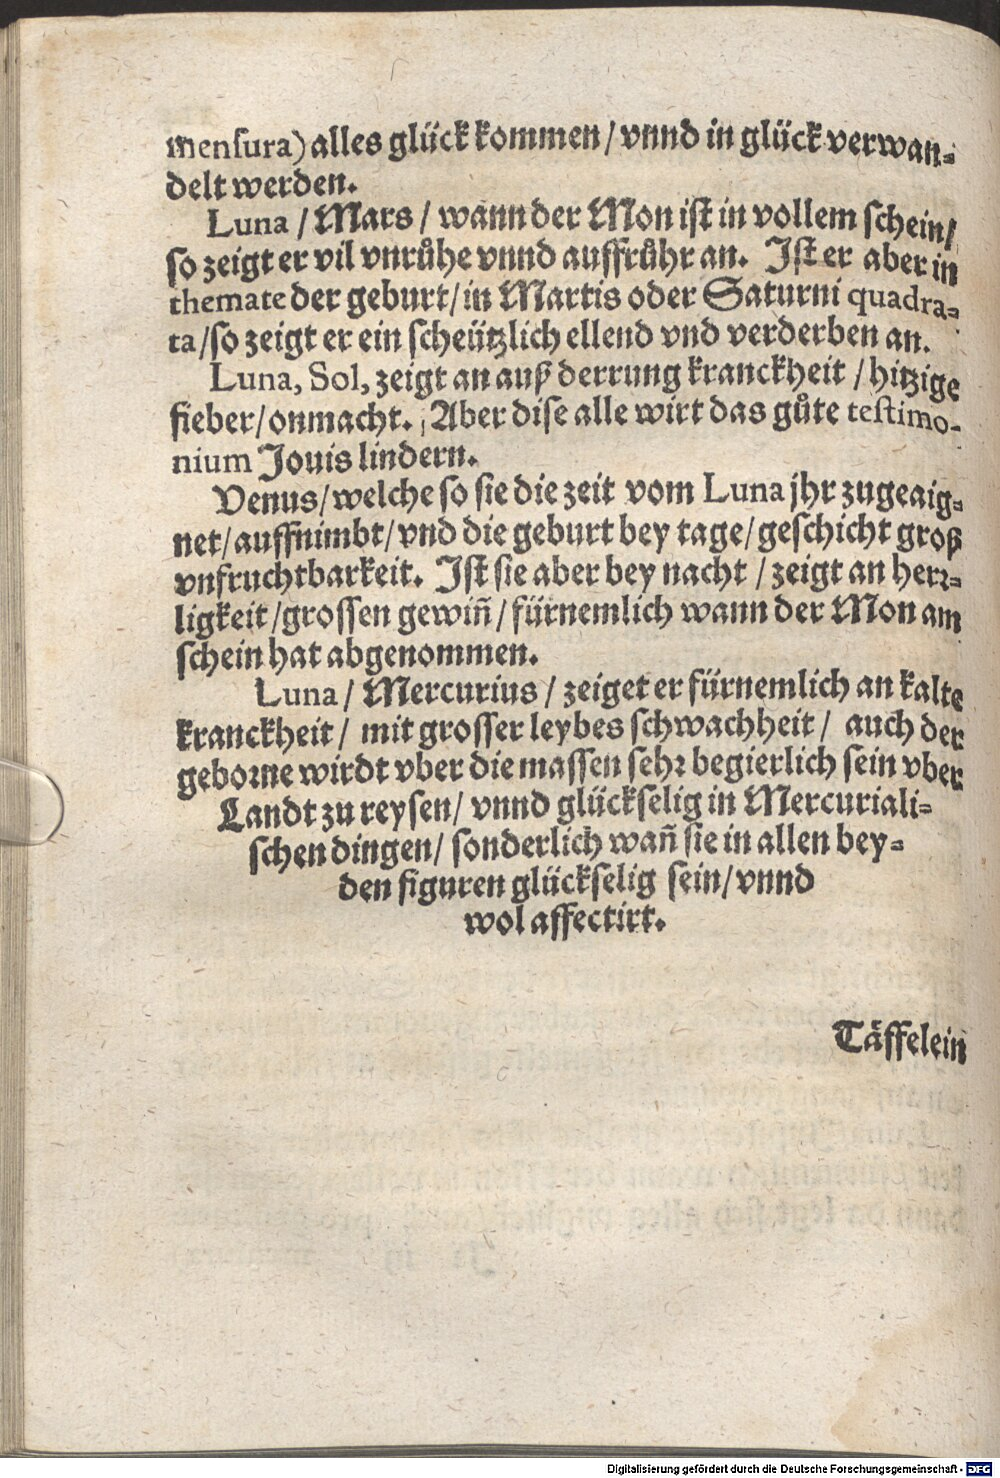 mensura) alles glück kommen / vnnd in glück verwan-
delt werden.
Luna / Mars / wann der Mon ist in vollem schein /
so zeigt er vil vnrůhe vnnd auffrůhr an. Ist er aber in
themate der geburt / in Martis oder Saturni quadra-
ta / so zeigt er ein scheützlich ellend vnd verderben an.
Luna, Sol, zeigt an auß derrung kranckheit / hitzige
fieber / onmacht. Aber dise alle wirt das gůte testimo-
nium Jouis lindern.
Venus / welche so sie die zeit vom Luna jhr zugeaig-
net / auffnimbt / vnd die geburt bey tage / geschicht groß
vnfruchtbarkeit. Ist sie aber bey nacht / zeigt an herr-
ligkeit / grossen gewiñ / fürnemlich wann der Mon am
schein hat abgenommen.
Luna / Mercurius / zeiget er fürnemlich an kalte
kranckheit / mit grosser leybes schwachheit / auch der
geborne wirdt vber die massen sehr begierlich sein vber
Landt zu reysen / vnnd glückselig in Mercuriali-
schen dingen / sonderlich wañ sie in allen bey-
den figuren glückselig sein / vnnd
wol affectirt.
Täffelein
Digitalisierung gefördert durch die Deutsche Forschungsgemeinschaft - DFG